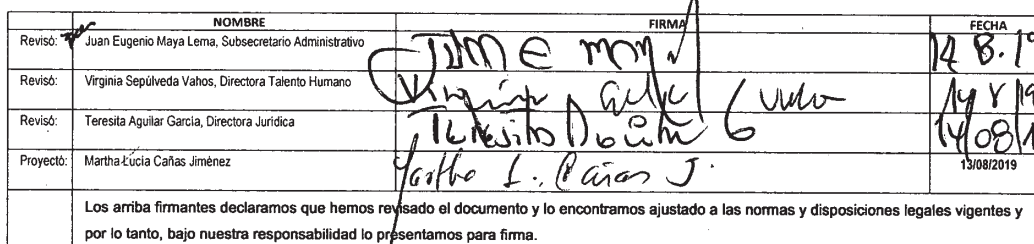 NOMBRE FIRMA FECHA
Revisó: Juan Eugenio Maya Lema, Subsecretario Administrativo 14 8.19
Revisó: Virginia Sepúlveda Vahos, Directora Talento Humano 14 8 19
Revisó: Teresita Aguilar García, Directora Jurídica Teresita 14/08/1
Proyectó: Martha Lucía Cañas Jiménez Martha L. Cañas J. 13/08/2019
Los arriba firmantes declaramos que hemos revisado el documento y lo encontramos ajustado a las normas y disposiciones legales vigentes y
por lo tanto, bajo nuestra responsabilidad lo presentamos para firma.